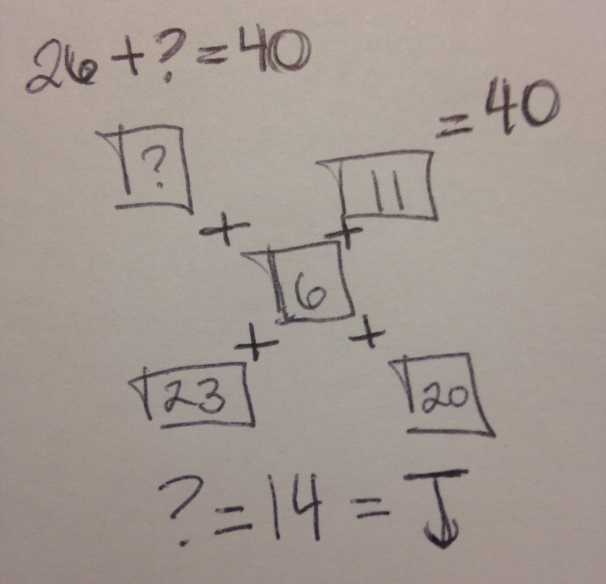 26 + ? = 40
= 40
? 11
+ +
6
+ +
23 20
? = 14 = J